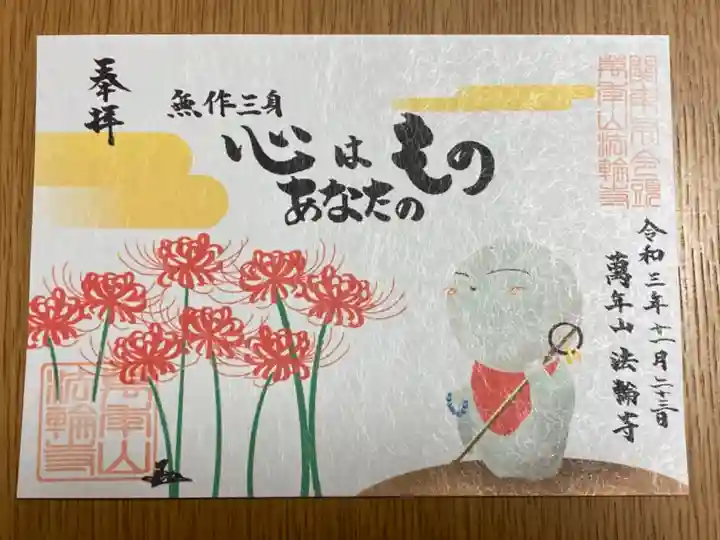 奉拝
無作三身
心は
あなたの
もの
令和三年十一月二十三日
萬年山 法輪寺
萬年山法輪寺
萬年山
法輪寺